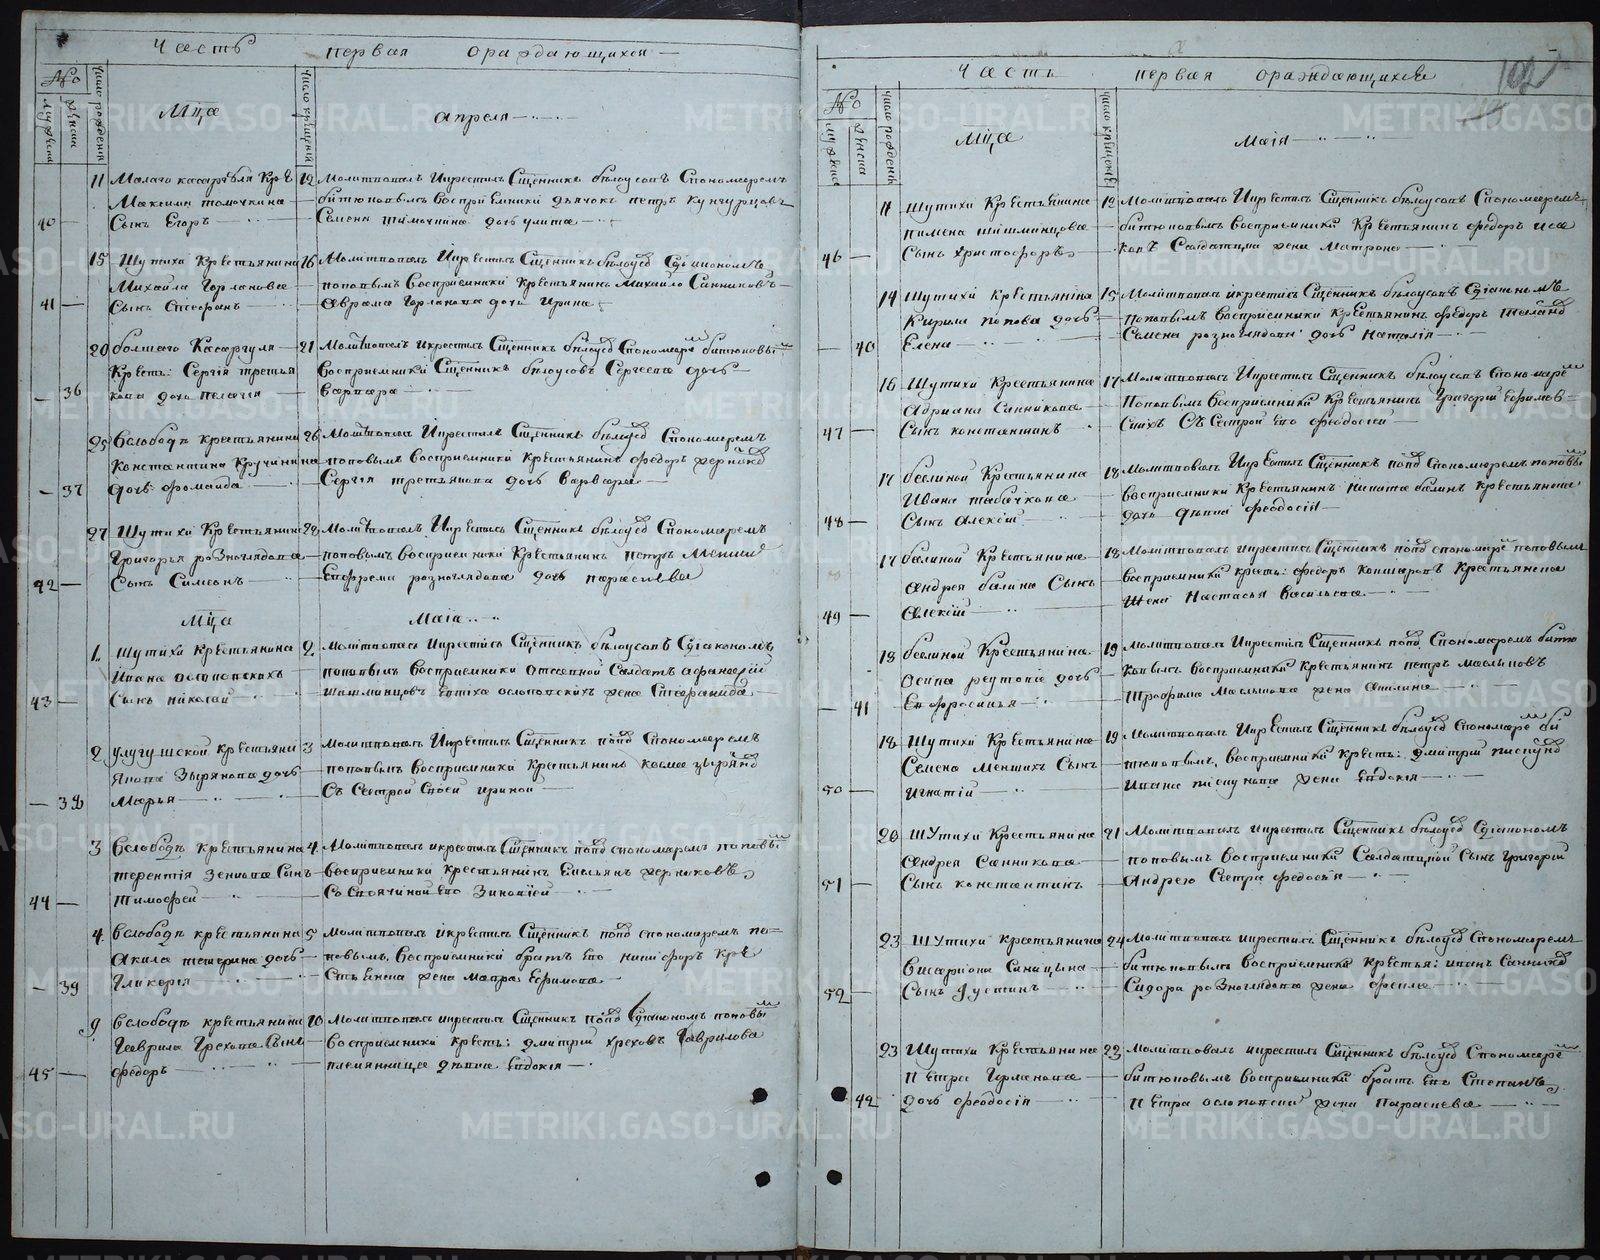 Часть первая ораждающихся
№
Мца апреля
11 Малаго касаргуля Крѣ
Максима томочкина
40 Сынъ Егоръ
12 Молитвовалъ Икрестилъ Сщенникъ бѣлоусовъ Спономаремъ
битюковымъ Восприемники дьячокъ петръ кунгурцовъ
Семена томочкина дочь улита
15 Шутихи Крестьянина
Михаила Горланова
41 Сынъ Стефанъ
16 Молитвовалъ Икрестилъ Сщенникъ бѣлоусо Сдьякономъ
поповымъ Восприемники Крестьянинъ Михайло Санниковъ
Аврама Горланова дочь Ирина
20 болшаго Касаргуля
Крестъ: Сергія третья
36 кова дочь пелагия
21 Молитвовалъ Икрестилъ Сщенникъ бѣлоусо Спономаре битюковы
восприемники Сщенникъ бѣлоусовъ Сергеева дочь
варвара
25 Вслободѣ крестьянина
Константина Кручинина
37 дочь фомаида
26 Молитвовалъ Икрестилъ Сщенникъ бѣлоусо Спономаремъ
поповымъ восприемники крестьянинъ федоръ
Сергія третьякова дочь варвара
27 Шутихи Крестьянина
Григорья розноглядова
42 Сынъ Симеонъ
28 Молитвовалъ Икрестилъ Сщенникъ бѣлоусо Спономаремъ
поповымъ восприемники Крестьянинъ петръ
Ефрема розноглядова дочь параскева
Мца Маіа
1 шутихи крестьянина
Ивана ослоповскихъ
43 Сынъ николай
2 Молитвовалъ Икрестилъ Сщенникъ бѣлоусовъ Сдіакономъ
поповымъ Восприемники Отставной Салдатъ афанасей
шишминцовъ Евтіха ослоповскихъ жена Стефанида
2 улугушской крестьяни
Якова Зырянова дочь
38 Марья
3 Молитвовалъ Икрестилъ Сщенникъ попо Спономаремъ
поповымъ восприемники Крестьянинъ козма зыряно
Съ Сестрой Своей ириной
3 Вслободѣ крестьянина
терентія Зенкова Сынъ
44 Тимофей
4 Молитвовалъ икрестилъ Сщенникъ попо спономаремъ поповы
восприемники крестьянинъ Емельянъ черниковъ
Со Своячиной Его Зиновіей
4 Вслободѣ крестьянина
Акила тетерина дочь
39 Гликерія
5 Молитвовалъ икрестилъ Сщенникъ попо спономаремъ по
повымъ, восприемники братъ Его никифоръ Кре
стьянска жена Мавра Ефимова
9 вслободѣ крестьянина
Гаврила Грехова Сынъ
45 федоръ
10 Молитвовалъ икрестилъ Сщенникъ попо Сдіакономъ поповы
восприемники крестъ: дмитрій греховъ Гаврилова
племянница дѣвка Евдокія
102
Часть первая ораждающихся
№
Мца Маія
11 Шутихи Крестьянина
пимена шишминцова
46 Сынъ Христофоръ
12 Молитвовалъ Икрестилъ Сщенникъ бѣлоусовъ Спономаремъ
битюковымъ восприемники Крестьянинъ федоръ иса
ковъ Салдатки жена Матрона
14 Шутихи Крестьянина
Кирила попова дочь
40 Елена
15 Молитвовалъ икрестилъ Сщенникъ бѣлоусовъ Сдіакономъ
поповымъ восприемники крестьянинъ федоръ
Семена розноглядова дочь Наталія
16 Шутихи Крестьянина
Адриана Санникова
47 Сынъ константинъ
17 Молитвовалъ Икрестилъ Сщенникъ бѣлоусовъ Спономаре
поповымъ восприемники крестьянинъ Григорій Ефимов
скихъ СъСестрой Его феодосіей
17 белиной Крестьянина
Ивана табачкова
48 Сынъ Алексій
18 Молитвовалъ Икрестилъ Сщенникъ попо Спономаремъ поповы
восприемники Крестьянинъ никита балинъ крестьянска
дочь дѣвка феодосія
17 белиной Крестьянина
Андрея балина Сынъ
49 Алексій
18 Молитвовалъ икрестилъ Сщенникъ попо спономаре поповымъ
восприемники крестъ: федоръ Кошкаровъ Крестьянска
Жена Настасья васильева
18 белиной Крестьянина
Осипа реутова дочь
41 Евфросинья
19 Молитвовалъ Икрестилъ Сщенникъ попо Спономаремъ битю
ковымъ восприемники крестьянинъ петръ масльковъ
Трофима Маслькова жена Акилина
18 Шутихи Крестьянина
Семена Меншихъ Сынъ
50 Игнатій
19 Молитвовалъ Икрестилъ Сщенникъ бѣлоусо Спономаре би
тюковымъ, восприемники крестъ: дмитрій пискуно
Ивана пискунова жена Евдокія
20 Шутихи Крестьянина
Андрея Санникова
51 Сынъ константинъ
21 Молитвовалъ икрестилъ Сщенникъ бѣлоусо Сдіакономъ
поповымъ восприемники Салдатской Сынъ Григорій
Андрею Сестра федосья
23 Шутихи крестьянина
Висариона Синицына
52 Сынъ Іустинъ
24 Молитвовалъ икрестилъ Сщенникъ бѣлоусо Спономаремъ
битюковымъ восприемники Крестья: иванъ Саннико
Сидора розноглядова жена фекла
23 Шутихи Крестьянина
Петра Горланова
42 дочь феодосія
23 Молитвовалъ икрестилъ Сщенникъ бѣлоусо Спономаре
битюковымъ восприемники братъ Его Степанъ
Петра ослоповски жена Параскева